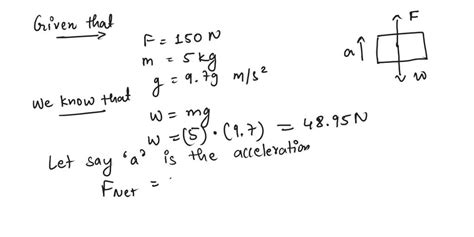 Given that
F = 150 N
m = 5 kg
g = 9.79 m/s²
We know that
w = mg
w = (5) · (9.7) = 48.95 N
Let say 'a' is the acceleration
F Net =
F
a
w